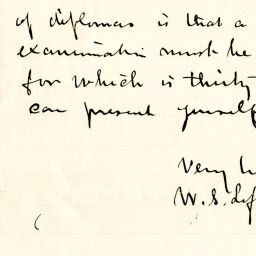 of diplomas is that a
examination must be
for which is thirty
can present yourself
Very
W. S.